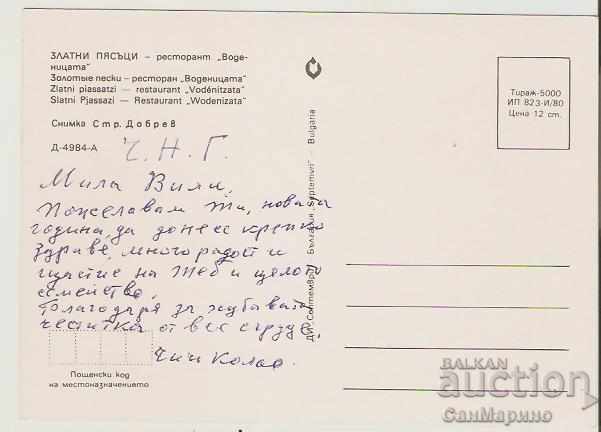 ЗЛАТНИ ПЯСЪЦИ – ресторант „Воде-
ницата"
Золотые пески – ресторан „Воденицата"
Zlatni piassatzi — restaurant „Vodénitzata"
Slatni Pjassazi — Restaurant „Wodenizata"
Снимка Стр. Добрев
Д-4984-А
Ч. Н. Г.
Мила Вили,
Пожелавам ти, новата
година, да донесе крепко
здраве, много радост и
щастие на теб и цялото
семейство.
Благодаря за хубавата
честитка от все сърце.
Чичо Кольо.
Пощенски код
на местоназначението
ДИ „Септември" България „Septemvri" Bulgaria
Тираж-5000
ИП 823-И/80
Цена 12 ст.
BALKAN
auction
СанМарино